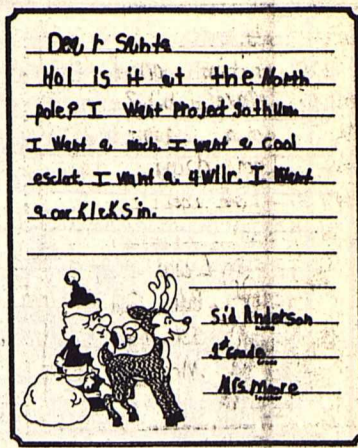 Dear Santa
Hol is it at the North
pole? I Want Project Gothum.
I Want a moch. I want a cool
esclat. I want a 4wllr. I Want
a our KleKS in.
Sid Anderson
1st Grade
Mrs. Moore